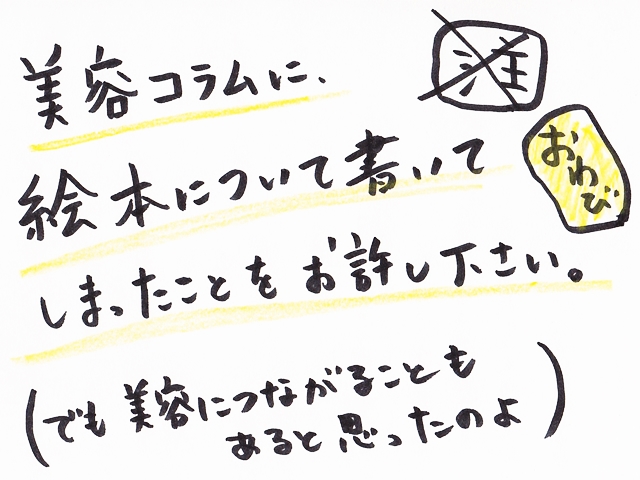 美容コラムに、
注
絵本について書いて
おわび
しまったことをお許し下さい。
(でも美容につながることも
あると思ったのよ)